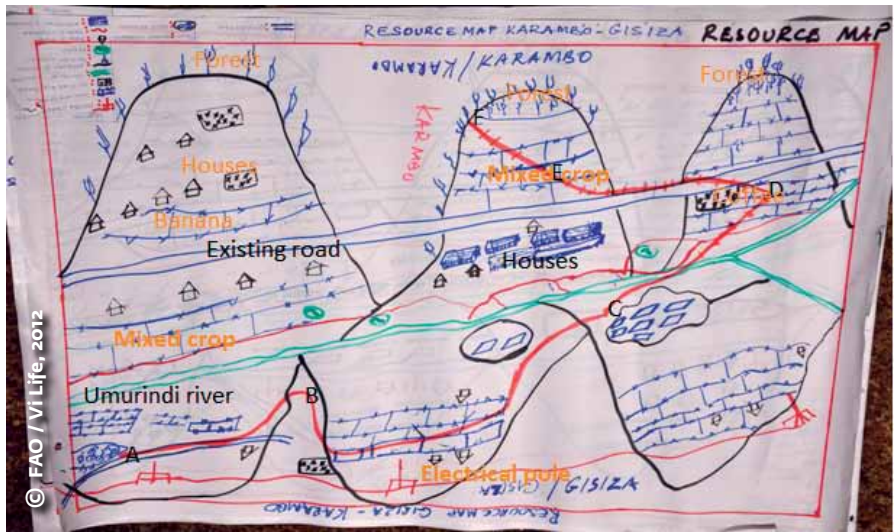 RESOURCE MAP KARAMBO-GISIZA RESOURCE MAP
KARAMBO/KARAMBO
Forest
Forest
Forest
KARMBO
F
Houses
Mixed crop
E
Coffee
D
Banana
Existing road
Houses
C
Mixed crop
Umurindi river
B
A
Electrical pole
GISIZA/GISIZA
RESOURCE MAP GISIZA - KARAMBO
© FAO / Vi Life, 2012